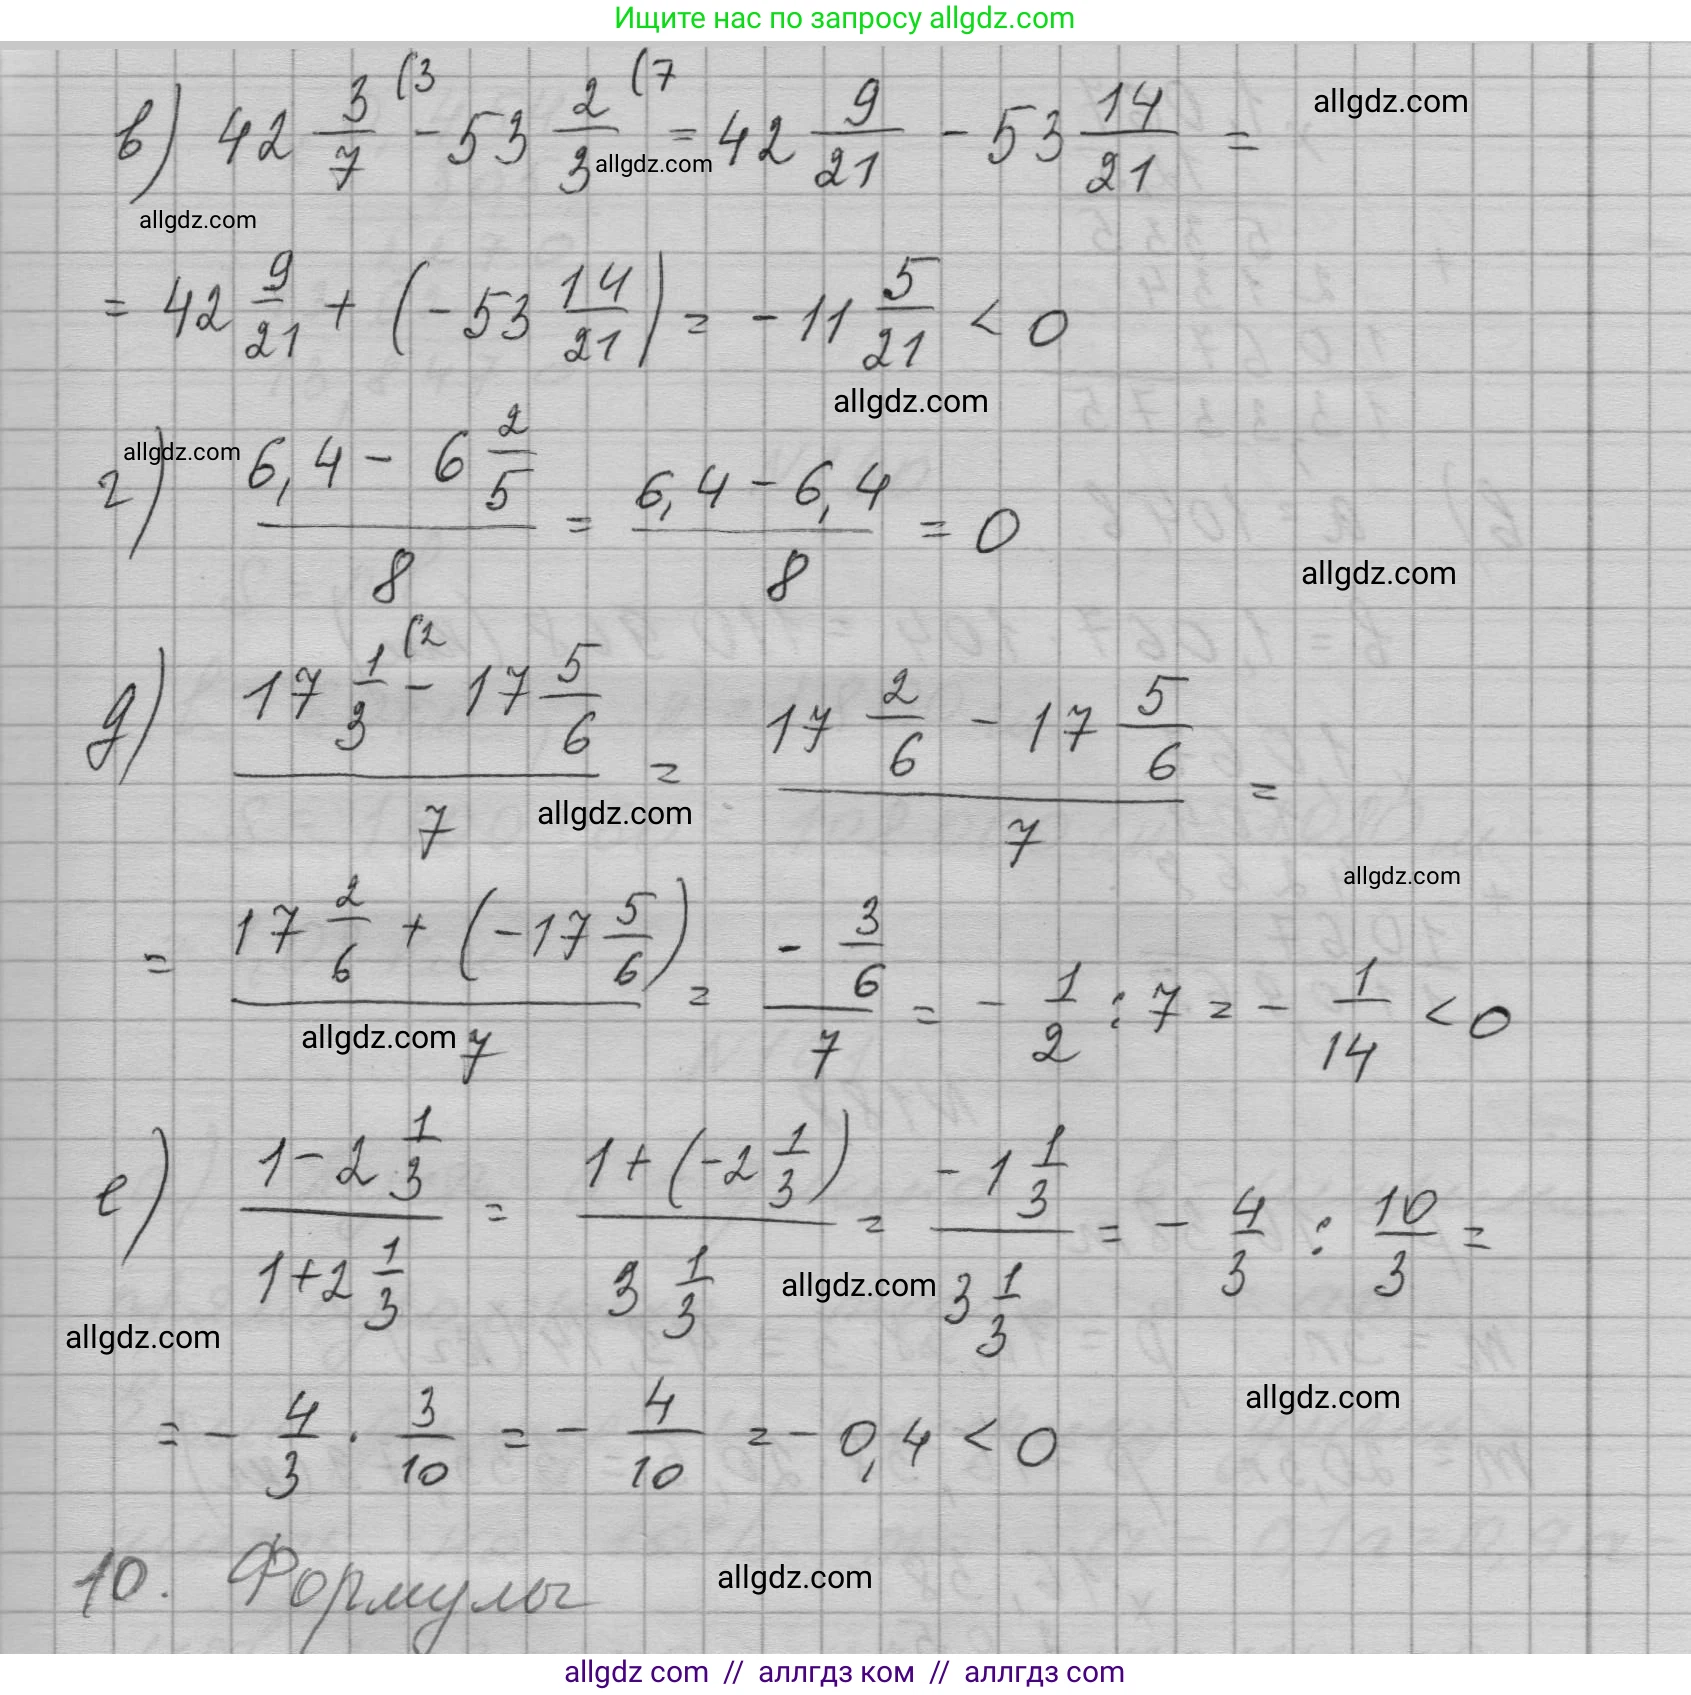 Ищите нас по запросу allgdz.com
в) 42 3/7 (3 - 53 2/3 (7 = 42 9/21 - 53 14/21 =
allgdz.com
allgdz.com
allgdz.com
= 42 9/21 + (-53 14/21) = -11 5/21 < 0
allgdz.com
allgdz.com
г) (6,4 - 6 2/5)/8 = (6,4 - 6,4)/8 = 0
allgdz.com
д) (17 1/3 (2 - 17 5/6)/7 = (17 2/6 - 17 5/6)/7 =
allgdz.com
allgdz.com
= (17 2/6 + (-17 5/6))/7 = (-3/6)/7 = - 1/2 : 7 = - 1/14 < 0
allgdz.com
е) (1 - 2 1/3)/(1 + 2 1/3) = (1 + (-2 1/3))/(3 1/3) = (-1 1/3)/(3 1/3) = - 4/3 : 10/3 =
allgdz.com
allgdz.com
allgdz.com
= - 4/3 · 3/10 = - 4/10 = - 0,4 < 0
10. Формулы
allgdz.com
allgdz com // аллгдз ком // аллгдз com